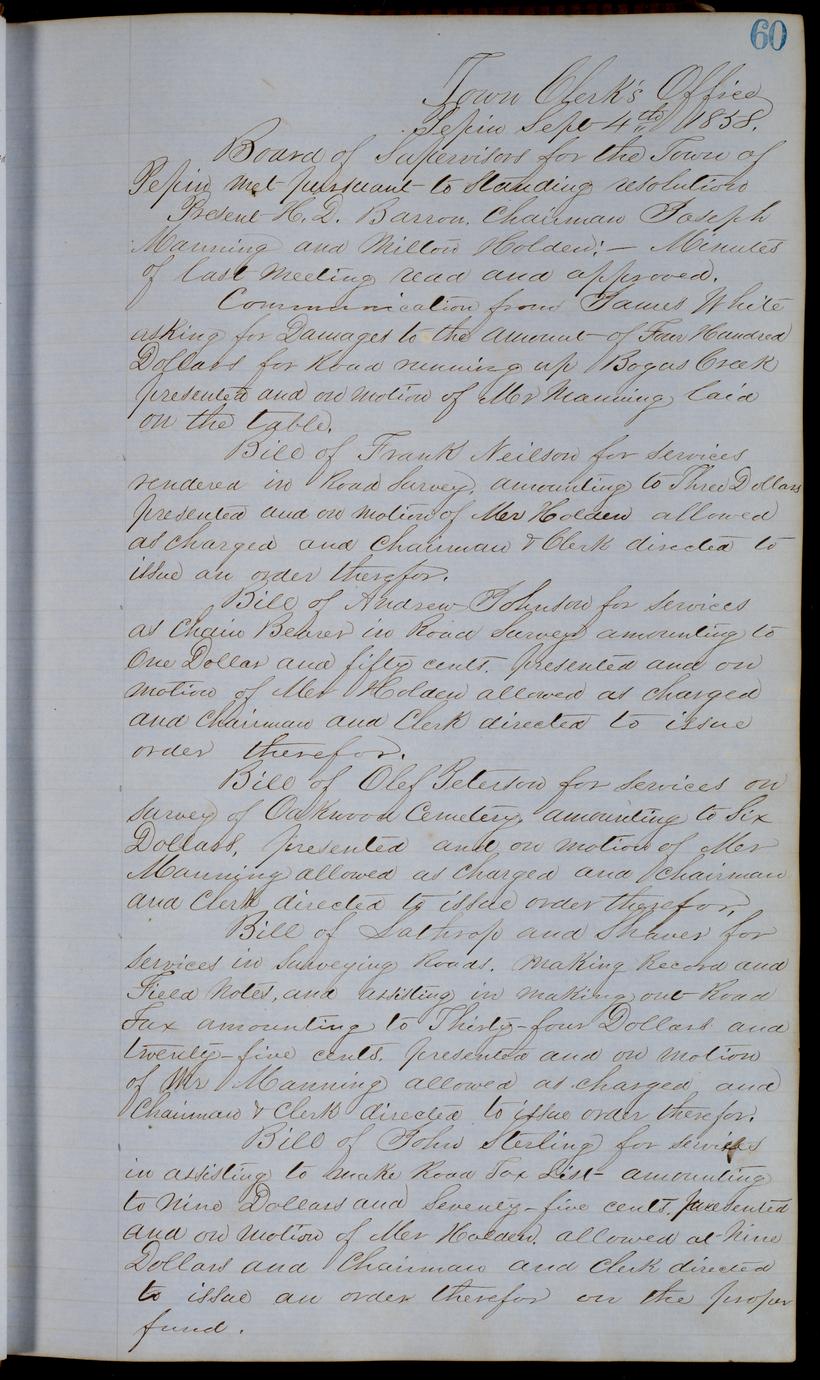 60
Town Clerk's Office
Pepin Sept 4th 1858.
Board of Supervisors for the Town of
Pepin met pursuant to Standing resolution
Present H. D. Barron. Chairman Joseph
Manning and Milton Holden:- Minutes
of last meeting read and approved.
Communication from James White
asking for Damages to the amount of Four Hundred
Dollars for Road running up Bogus Creek
presented and on motion of Mr Manning laid
on the table.
Bill of Frank Neilson for services
rendered in Road Survey. amounting to Three Dollars
presented and on motion of Mr Holden allowed
as charged and Chairman & Clerk directed to
issue an order therefor.
Bill of Andrew Johnson for services
as Chain Bearer in Road Survey amounting to
One Dollar and fifty cents. presented and on
motion of Mr Holden allowed as charged
and Chairman and Clerk directed to issue
order therefor.
Bill of Olef Peterson for services on
survey of Oakwood Cemetery amounting to Six
Dollars, presented and on motion of Mr
Manning allowed as charged and Chairman
and Clerk directed to issue order therefor,
Bill of Lathrop and Shaver for
services in surveying Roads. making Record and
Field Notes, and assisting in making out Road
Tax amounting to Thirty-four Dollars and
twenty-five cents. presented and on motion
of Mr Manning allowed as charged and
Chairman & Clerk directed to issue order therefor.
Bill of John Sterling for services
in assisting to make Road Tax List amounting
to Nine Dollars and Seventy-five cents. presented
and on motion of Mr Holden. allowed at Nine
Dollars and Chairman and Clerk directed
to issue an order therefor on the proper
fund.